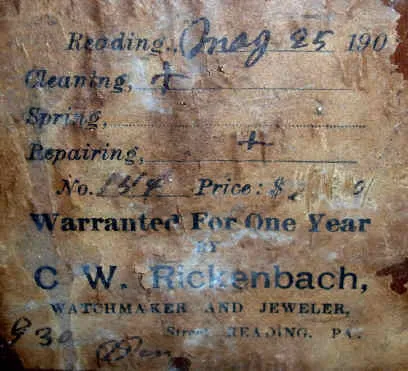 Reading, Aug 25 190
Cleaning, +
Spring,
Repairing, +
No. 154 Price: $
Warranted For One Year
BY
C. W. Rickenbach,
WATCHMAKER AND JEWELER,
Street, READING, PA.